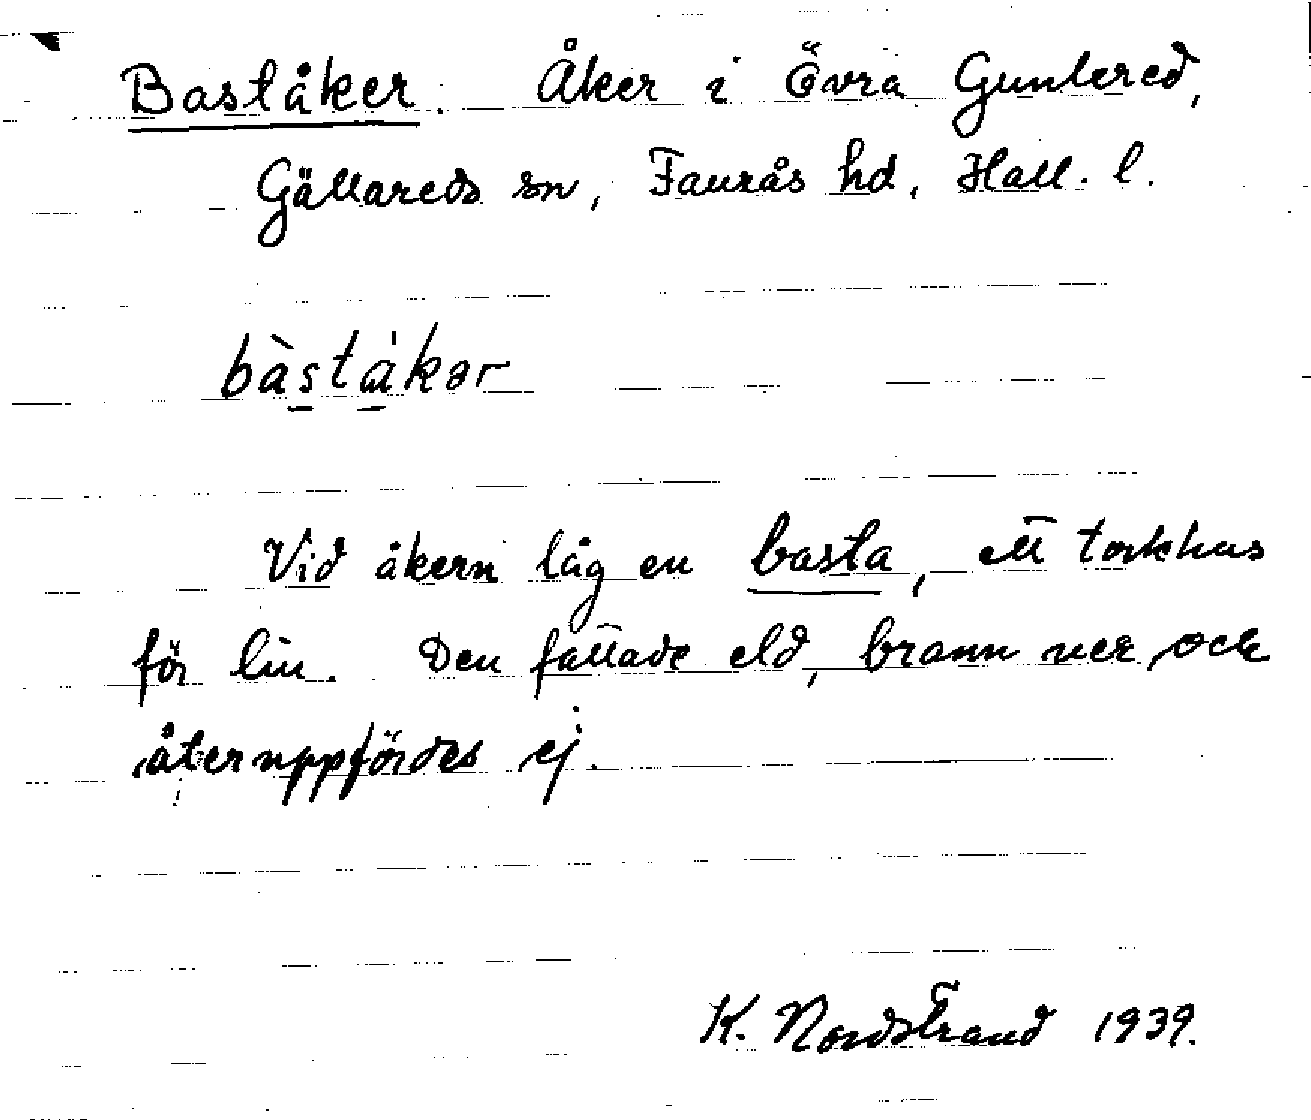 Baståker. Åker i Övra Guntered,
Gällareds sn, Faurås hd, Hall. l.
bàståkər
Vid åkern låg en basta, ett torkhus
för lin. Den fattade eld, brann ner och
återuppfördes ej.
K. Nordstrand 1939.